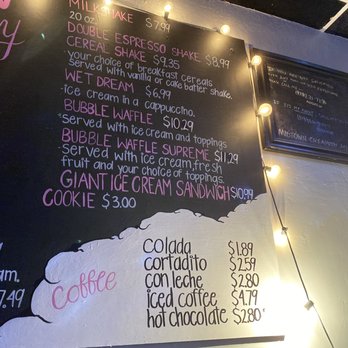 MILKSHAKE $7.99
20 oz
DOUBLE ESPRESSO SHAKE $8.99
CEREAL SHAKE $9.35
your choice of breakfast cereals
served with vanilla or cake batter shake.
WET DREAM $6.99
ice cream in a cappuccino.
BUBBLE WAFFLE $10.29
served with ice cream and toppings
BUBBLE WAFFLE SUPREME $11.29
served with ice cream, fresh
fruit and your choice of toppings.
GIANT ICE CREAM SANDWICH $10.99
COOKIE $3.00
am.
7.49
coffee
colada $1.89
cortadito $2.59
con leche $2.80
iced coffee $4.79
hot chocolate $2.80